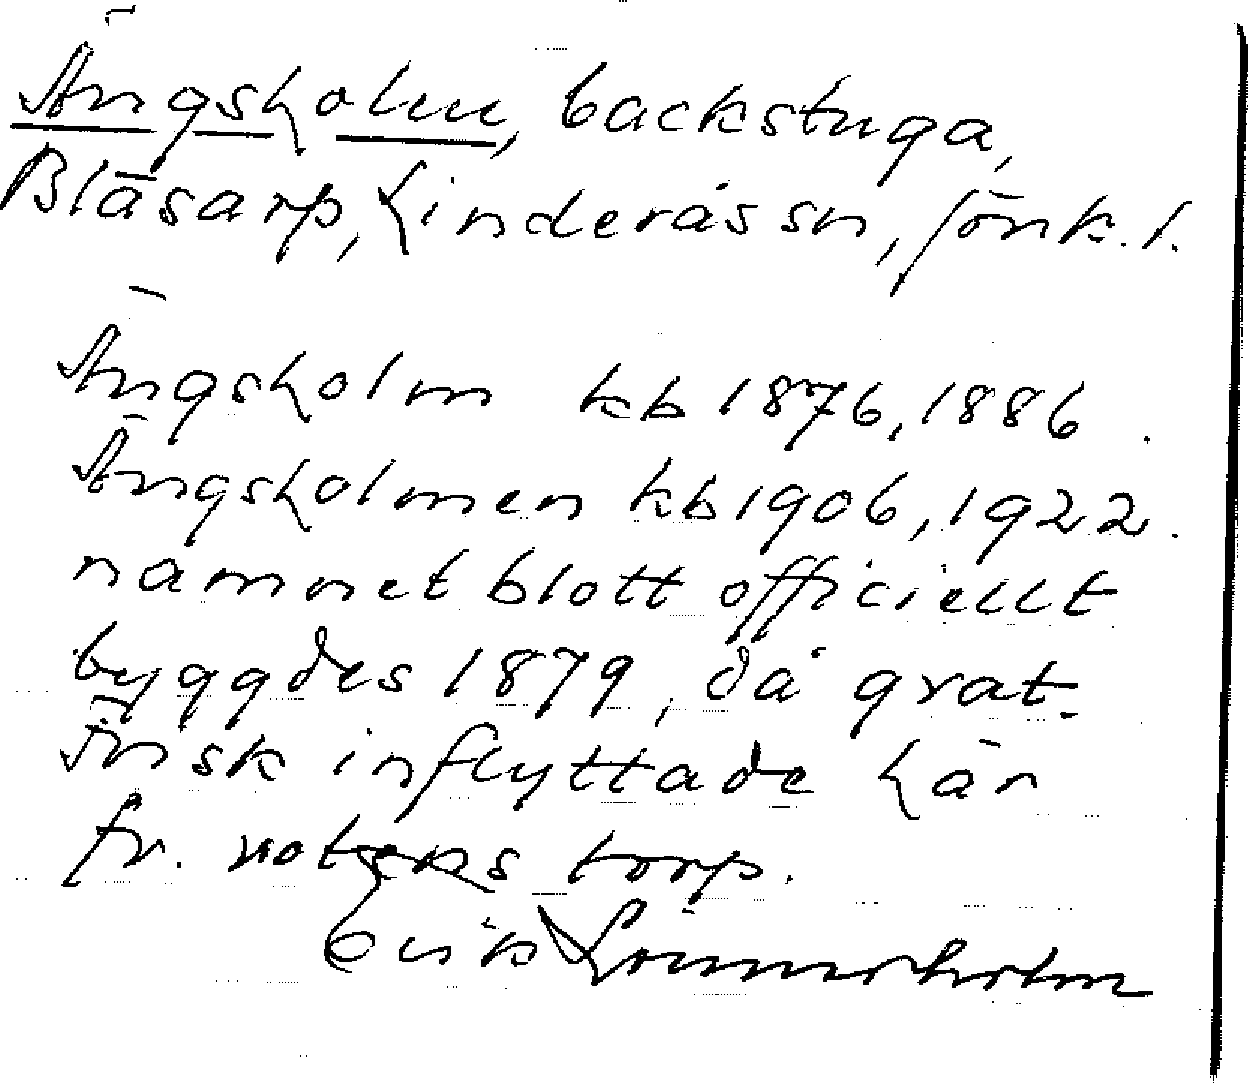 Ängsholm, backstuga,
Blāsarp, Linderås sn, Jönk. l.
Ängsholm kb 1876, 1886.
Ängsholmen kb 1906, 1922.
namnet blott officiellt
byggdes 1879, då grat.
Änsk inflyttade här
fr. rotens torp.
Erik Lönnerholm